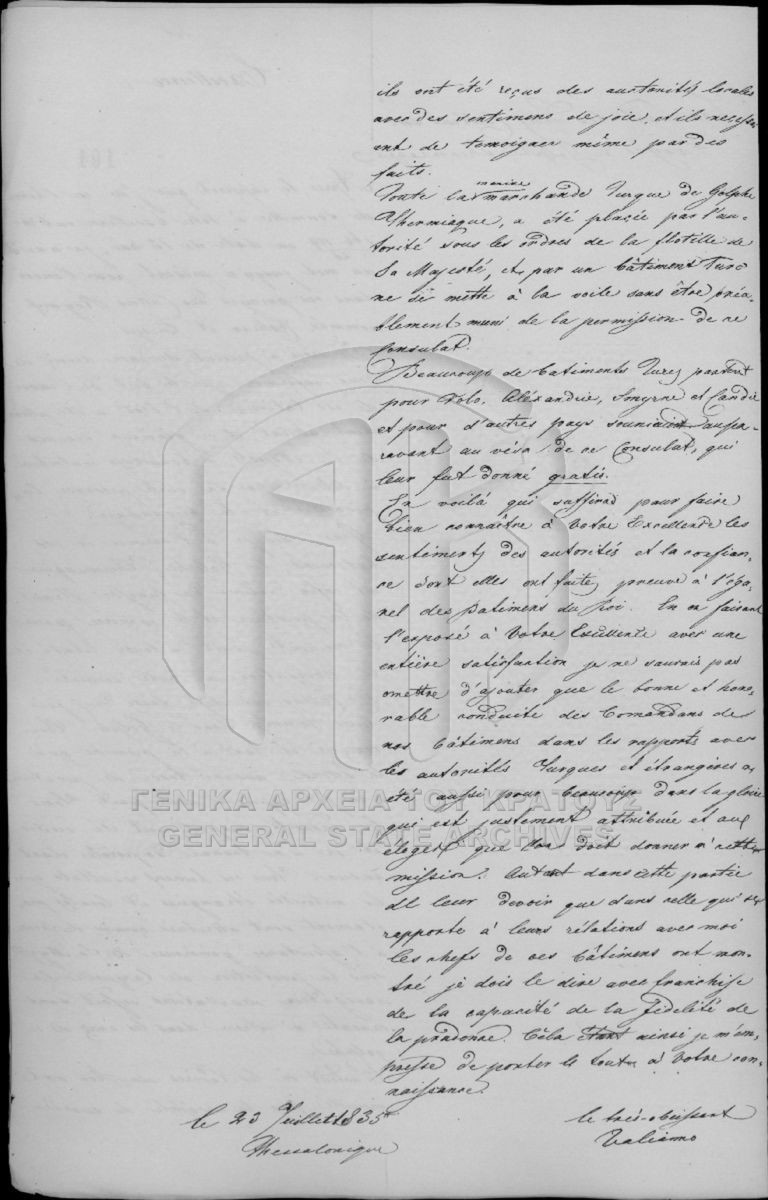 ils ont été reçus des auctorités locales
avec des sentimens de joie, et ils ne cess
ent de temoigner même par des
faits.
marine
Toute la marchande Turque de Golphe
Thermiaque, a été placée par l'au-
torité sous les ordres de la flotille de
Sa Majesté, et par un bâtiment Turc
ne se mette à la voile sans être préa-
blement muni de la permission de ce
Consulat.
Beaucoup de batiments Turcs partant
pour Volo, Aléxandrie, Smyrne et Candie
et pour d'autres pays aupa-
ravant au visa de ce Consulat, qui
leur fut donné gratis.
En voilà qui suffirad pour faire
bien connaître à Votre Excellence les
sentiments des autorités et la confian-
ce dont elles ont faites preuve à l'éga-
rel des batimens du Roi. En en faisant
l'exposé à Votre Excellence avec une
entière satisfaction je ne saurais pas
omettre d'ajouter que le bonne et hono-
rable conduite des Comandans de
nos bâtimens dans les rapports avec
les autorités Turques et étrangères a
été aussi pour beaucoup dans la gloire
qui est justement attribuée et aux
éloges que l'on doit donner à cette
mission. Autant dans cette partie
dl leur devoir que dans celle qui se
rapporte à leurs rélations avec moi
les chefs de ces bâtimens ont mon-
tré je dois le dire avec franchise
de la capacité de la fidelité de
la prudence. Cela étant ainsi je m'em-
presse de porter le tout à Votre con-
naissance.
le 23 Juillet 1835
Thessalonique
le très-obeissant
Valiano
ΓΕΝΙΚΑ ΑΡΧΕΙΑ ΤΟΥ ΚΡΑΤΟΥΣ
GENERAL STATE ARCHIVES